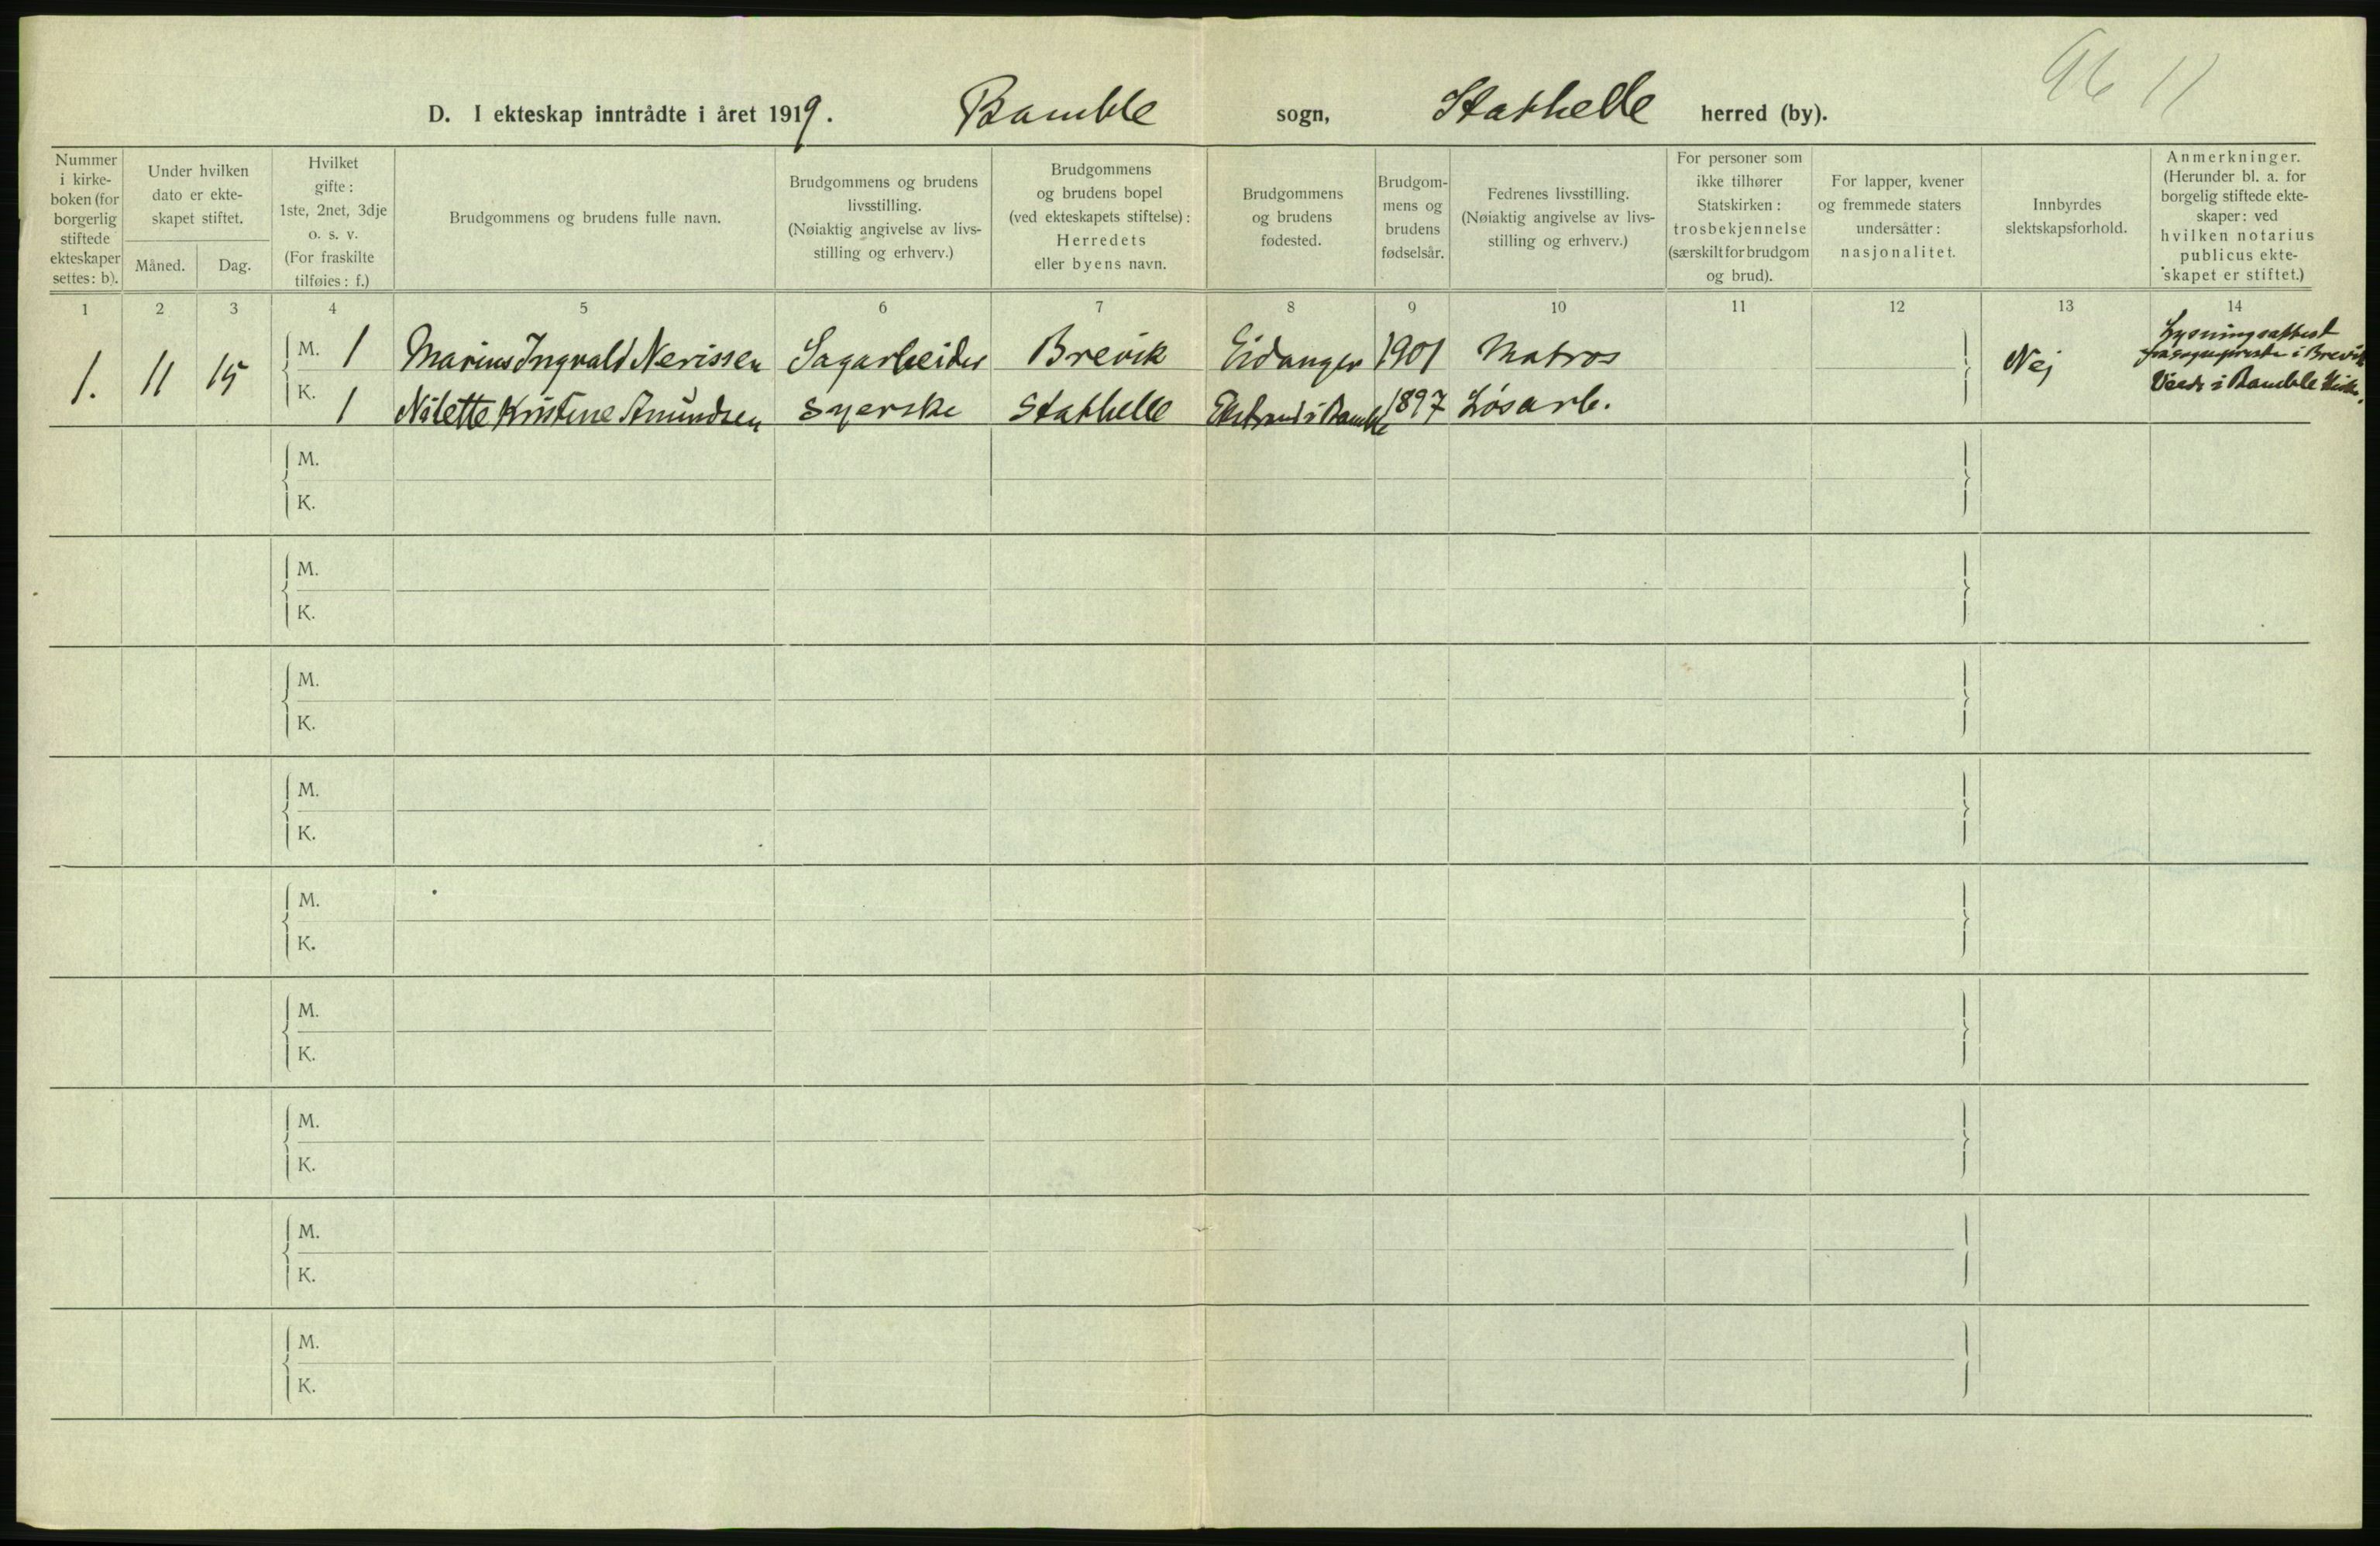 96 11
D. I ekteskap inntrådte i året 1919. Bamble sogn, Stathelle herred (by).
Nummer i kirke-boken (for borgerlig stiftede ekteskaper settes: b).
Under hvilken dato er ekte-skapet stiftet.
Måned. Dag.
Hvilket gifte: 1ste, 2net, 3dje o. s. v. (For fraskilte tilføies: f.)
Brudgommens og brudens fulle navn.
Brudgommens og brudens livsstilling. (Nøiaktig angivelse av livs-stilling og erhverv.)
Brudgommens og brudens bopel (ved ekteskapets stiftelse): Herredets eller byens navn.
Brudgommens og brudens fødested.
Brudgom-mens og brudens fødselsår.
Fedrenes livsstilling. (Nøiaktig angivelse av livs-stilling og erhverv.)
For personer som ikke tilhører Statskirken: trosbekjennelse (særskilt for brudgom og brud).
For lapper, kvener og fremmede staters undersåtter: nasjonalitet.
Innbyrdes slektskapsforhold.
Anmerkninger. (Herunder bl. a. for borgelig stiftede ekte-skaper: ved hvilken notarius publicus ekte-skapet er stiftet.)
1 2 3 4 5 6 7 8 9 10 11 12 13 14
1. 11 15 M. 1 Marius Ingvald Nerissen Sagarbeider Brevik Eidanger 1901 Matros Nej
K. 1 Nilette Kristine Amundsen Syerske Stathelle i Bamble 1897 Løsarb.
Lysningsattest
i Brevik
Viede i Bamble Kirke.
M.
K.
M.
K.
M.
K.
M.
K.
M.
K.
M.
K.
M.
K.
M.
K.
M.
K.